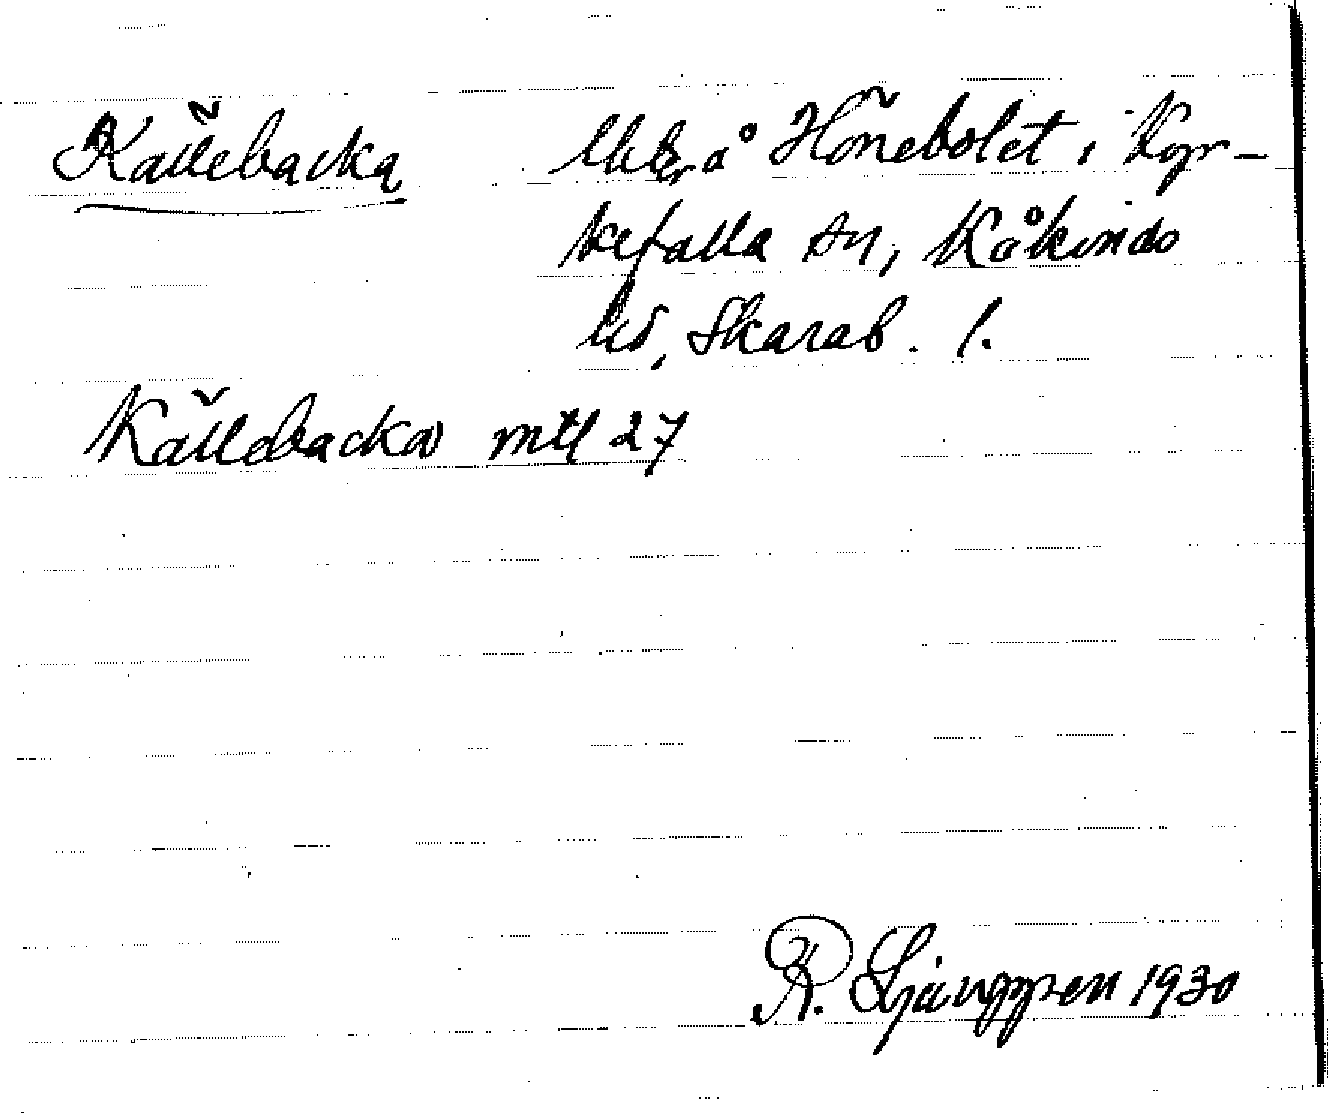 Källebacka Uteg. å Hönebolet i Kyr-
kefalla sn, Kåkinds
hd, Skarab. l.
Källebacka mtl 27
R. Ljunggren 1930